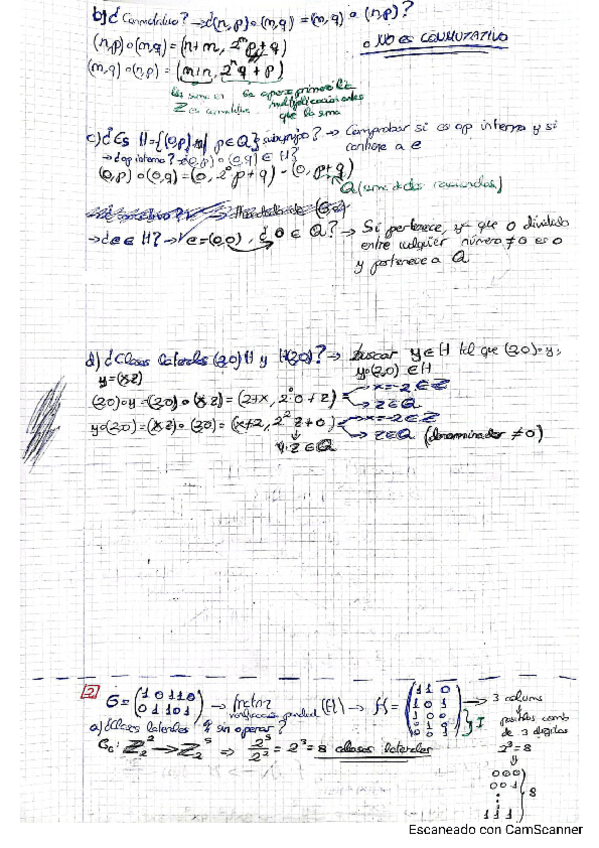 b) ¿Conmutativo? → ¿(n,p)∘(m,q) = (m,q) ∘ (n,p)?
(n,p)∘(m,q) = (n+m, 2^m p+q) ∘ NO ES CONMUTATIVO
(m,q)∘(n,p) = (m+n, 2^n q + p)
la suma en
Z es conmutativa que la suma
c) ¿Es H={(0,p) / p∈Q} subgrupo? → Comprobar si es op interna y si
contiene a e
→ ¿op interna? → ¿(0,p)∘(0,q) ∈ H?
(0,p)∘(0,q) = (0, 2^0 p+q) = (0, p+q)
Q (suma de dos racionales)
→ ¿e∈H? → e=(0,0), ¿0∈Q? → Sí pertenece, ya que 0 dividido
entre cualquier número ≠0 es 0
y pertenece a Q
d) ¿Clases laterales (2,0)H y H(2,0)? → buscar y∈H tal que (2,0)∘y,
y∘(2,0) ∈H
y=(x,z)
(2,0)∘y=(2,0)∘(x,z)=(2+x, 2^0 0+z) x=-2∈Z
z∈Q
y∘(2,0)=(x,z)∘(2,0)=(x+2, 2^2 z+0) x=-2∈Z
z∈Q (denominador ≠0)
4·z∈Q
2 G=(1 0 1 1 0 / 0 1 1 0 1) → matriz (H) → H=(1 1 0 / 1 0 1 / 1 0 0 / 0 1 0 / 0 0 1) I → 3 colums
posibles comb
de 3 dígitos
2^3=8
a) ¿Clases laterales sin operar?
Z_2^2 → Z_2^5 ⇒ 2^5/2^2 = 2^3 = 8 clases laterales
000
001
⋮ 8
111
Escaneado con CamScanner